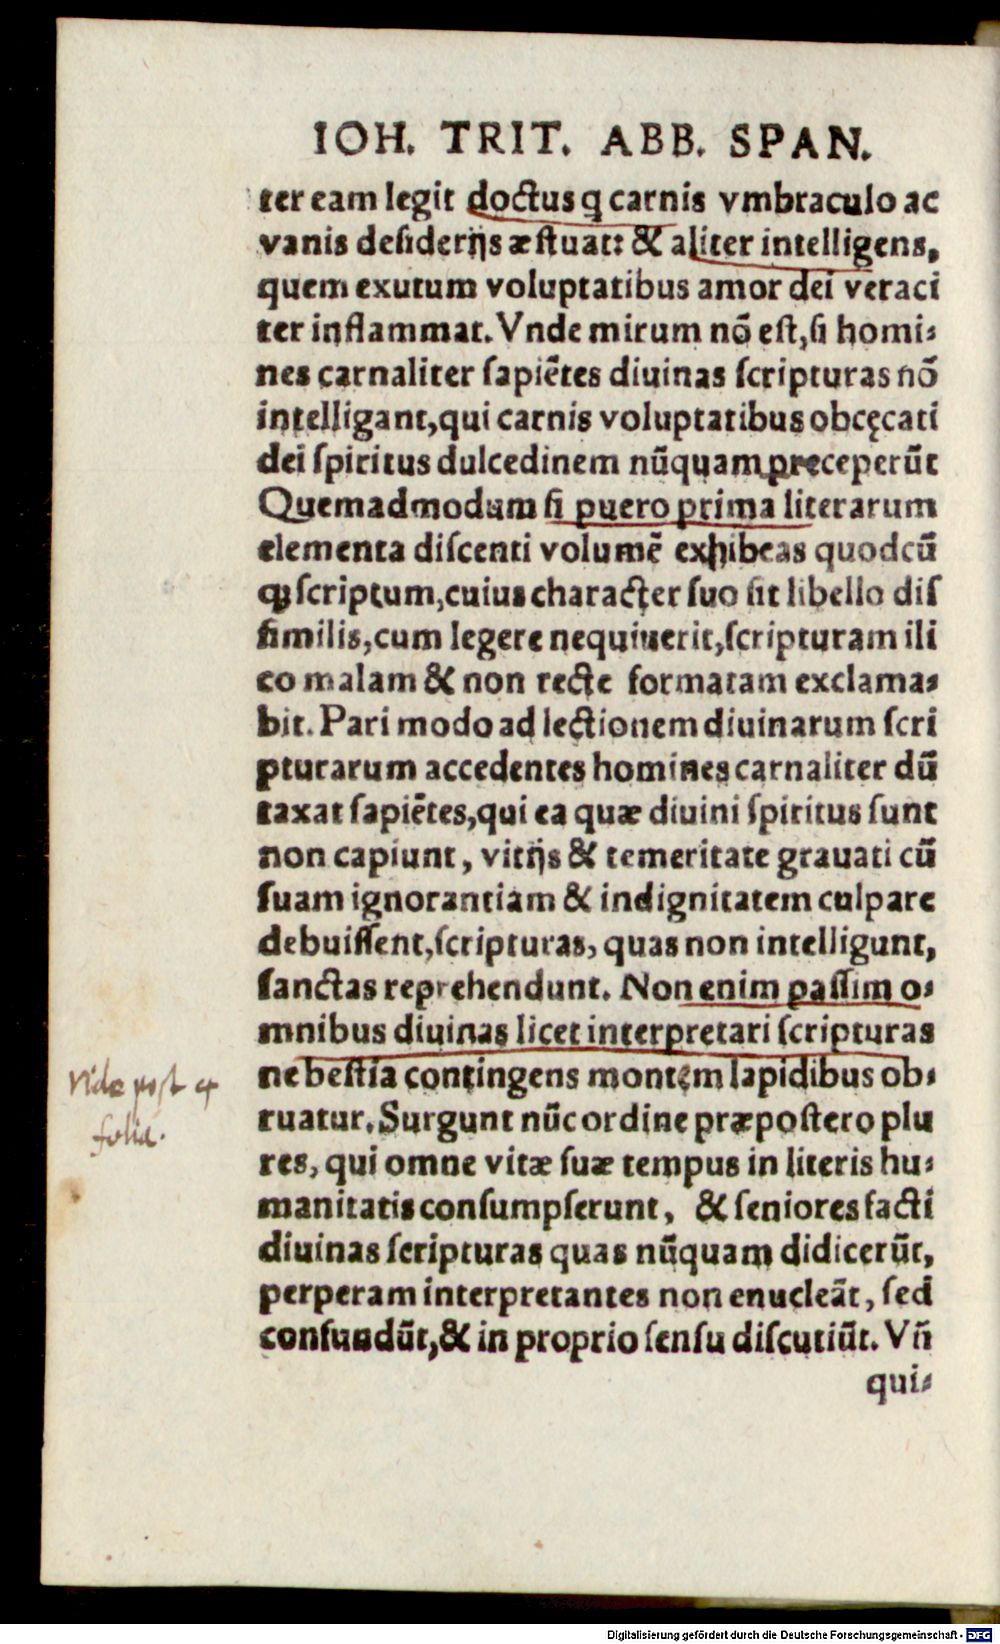 IOH. TRIT. ABB. SPAN.
ter eam legit doctus q carnis vmbraculo ac
vanis desiderijs æstuat: & aliter intelligens,
quem exutum voluptatibus amor dei veraci
ter inflammat. Vnde mirum nõ est, si homi-
nes carnaliter sapiẽtes diuinas scripturas nõ
intelligant, qui carnis voluptatibus obcęcati
dei spiritus dulcedinem nũquam pręceperũt
Quemadmodum si puero prima literarum
elementa discenti volumẽ exhibeas quodcũ
q; scriptum, cuius character suo sit libello dis
similis, cum legere nequiuerit, scripturam ili
co malam & non recte formatam exclama-
bit. Pari modo ad lectionem diuinarum scri
pturarum accedentes homines carnaliter dũ
taxat sapiẽtes, qui ea quæ diuini spiritus sunt
non capiunt, vitijs & temeritate grauati cũ
suam ignorantiam & indignitatem culpare
debuissent, scripturas, quas non intelligunt,
sanctas reprehendunt. Non enim passim o-
mnibus diuinas licet interpretari scripturas
ne bestia contingens montem lapidibus ob-
ruatur. Surgunt nũc ordine præpostero plu
res, qui omne vitæ suæ tempus in literis hu-
manitatis consumpserunt, & seniores facti
diuinas scripturas quas nũquam didicerũt,
perperam interpretantes non enucleãt, sed
confundũt, & in proprio sensu discutiũt. Vñ
qui-
vide post 4
folia.
Digitalisierung gefördert durch die Deutsche Forschungsgemeinschaft - DFG